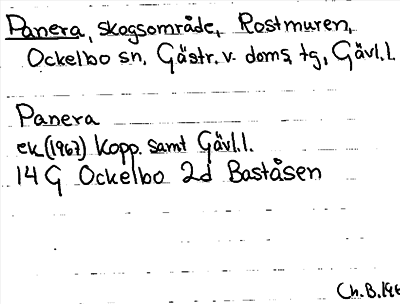 Panera, skogsområde, Rostmuren,
Ockelbo sn, Gästr. v. doms, tg, Gävl.l.
Panera
ek (1967) Kopp. samt Gävl.l.
14 G Ockelbo 2d Baståsen
Ch.B.